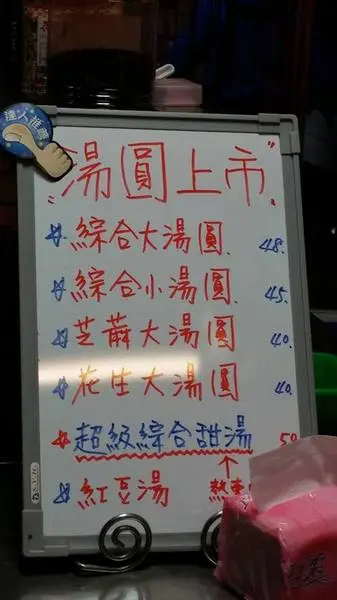 達人推薦
"湯圓上市"
綜合大湯圓. 48.
綜合小湯圓. 45.
芝蔴大湯圓 40.
花生大湯圓 40.
超級綜合甜湯 5
↑
紅豆湯 熱